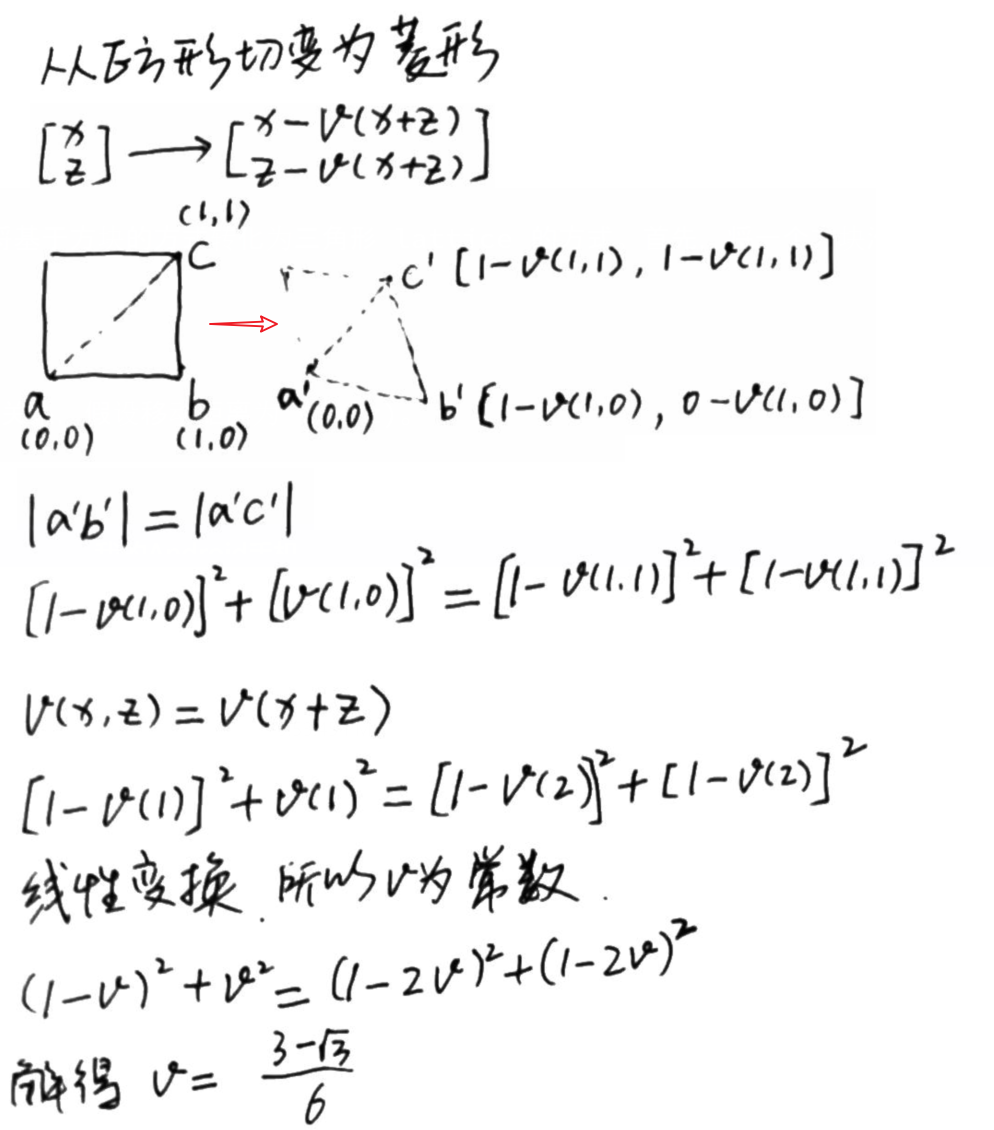 从正方形切变为菱形
[x z] → [x-v(x+z) z-v(x+z)]
(1,1)
c
c' [1-v(1,1), 1-v(1,1)]
a
(0,0)
b
(1,0)
a'
(0,0)
b' [1-v(1,0), 0-v(1,0)]
|a'b'|=|a'c'|
[1-v(1,0)]²+[v(1,0)]²=[1-v(1,1)]²+[1-v(1,1)]²
v(x,z)=v(x+z)
[1-v(1)]²+v(1)²=[1-v(2)]²+[1-v(2)]²
线性变换.所以v为常数.
(1-v)²+v²=(1-2v)²+(1-2v)²
解得 v= (3-√3)/6